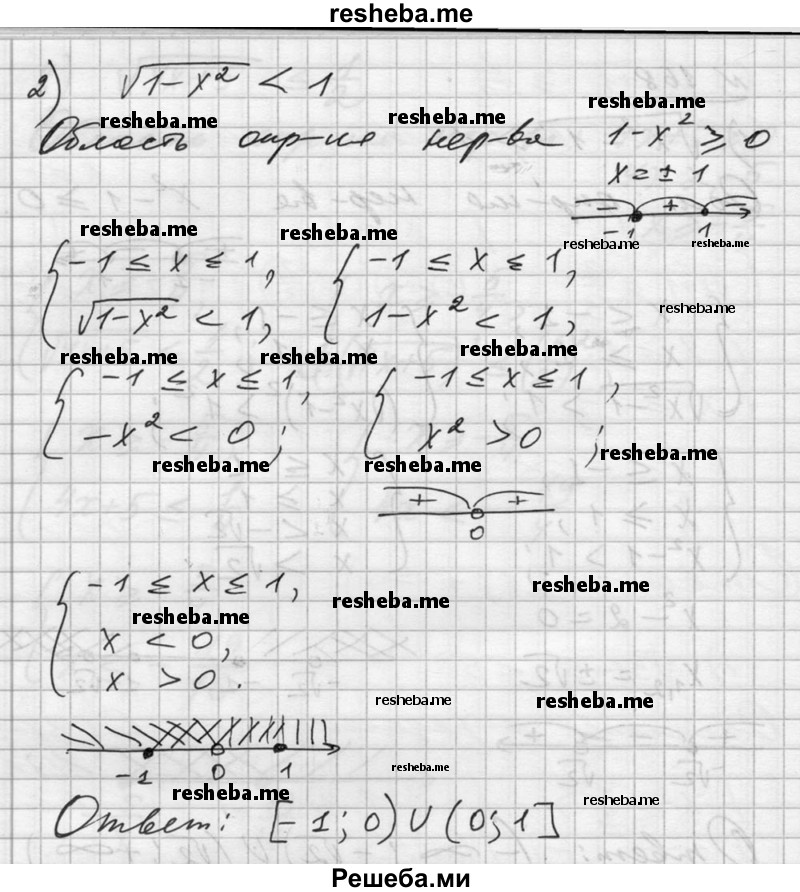 resheba.me
2) √1-x² < 1
resheba.me resheba.me resheba.me
Область опр-ия нер-ва 1-x² ≥ 0
x = ± 1
- + -
resheba.me resheba.me -1 1
resheba.me resheba.me
{ -1 ≤ x ≤ 1, { -1 ≤ x ≤ 1,
√1-x² < 1, 1-x² < 1,
resheba.me
resheba.me resheba.me resheba.me
{ -1 ≤ x ≤ 1, { -1 ≤ x ≤ 1,
-x² < 0; x² > 0;
resheba.me resheba.me resheba.me
+ +
0
{ -1 ≤ x ≤ 1,
x < 0,
x > 0.
resheba.me resheba.me resheba.me
resheba.me resheba.me
-1 0 1
resheba.me
resheba.me resheba.me
Ответ: [-1; 0) ∪ (0; 1]
Решеба.ми